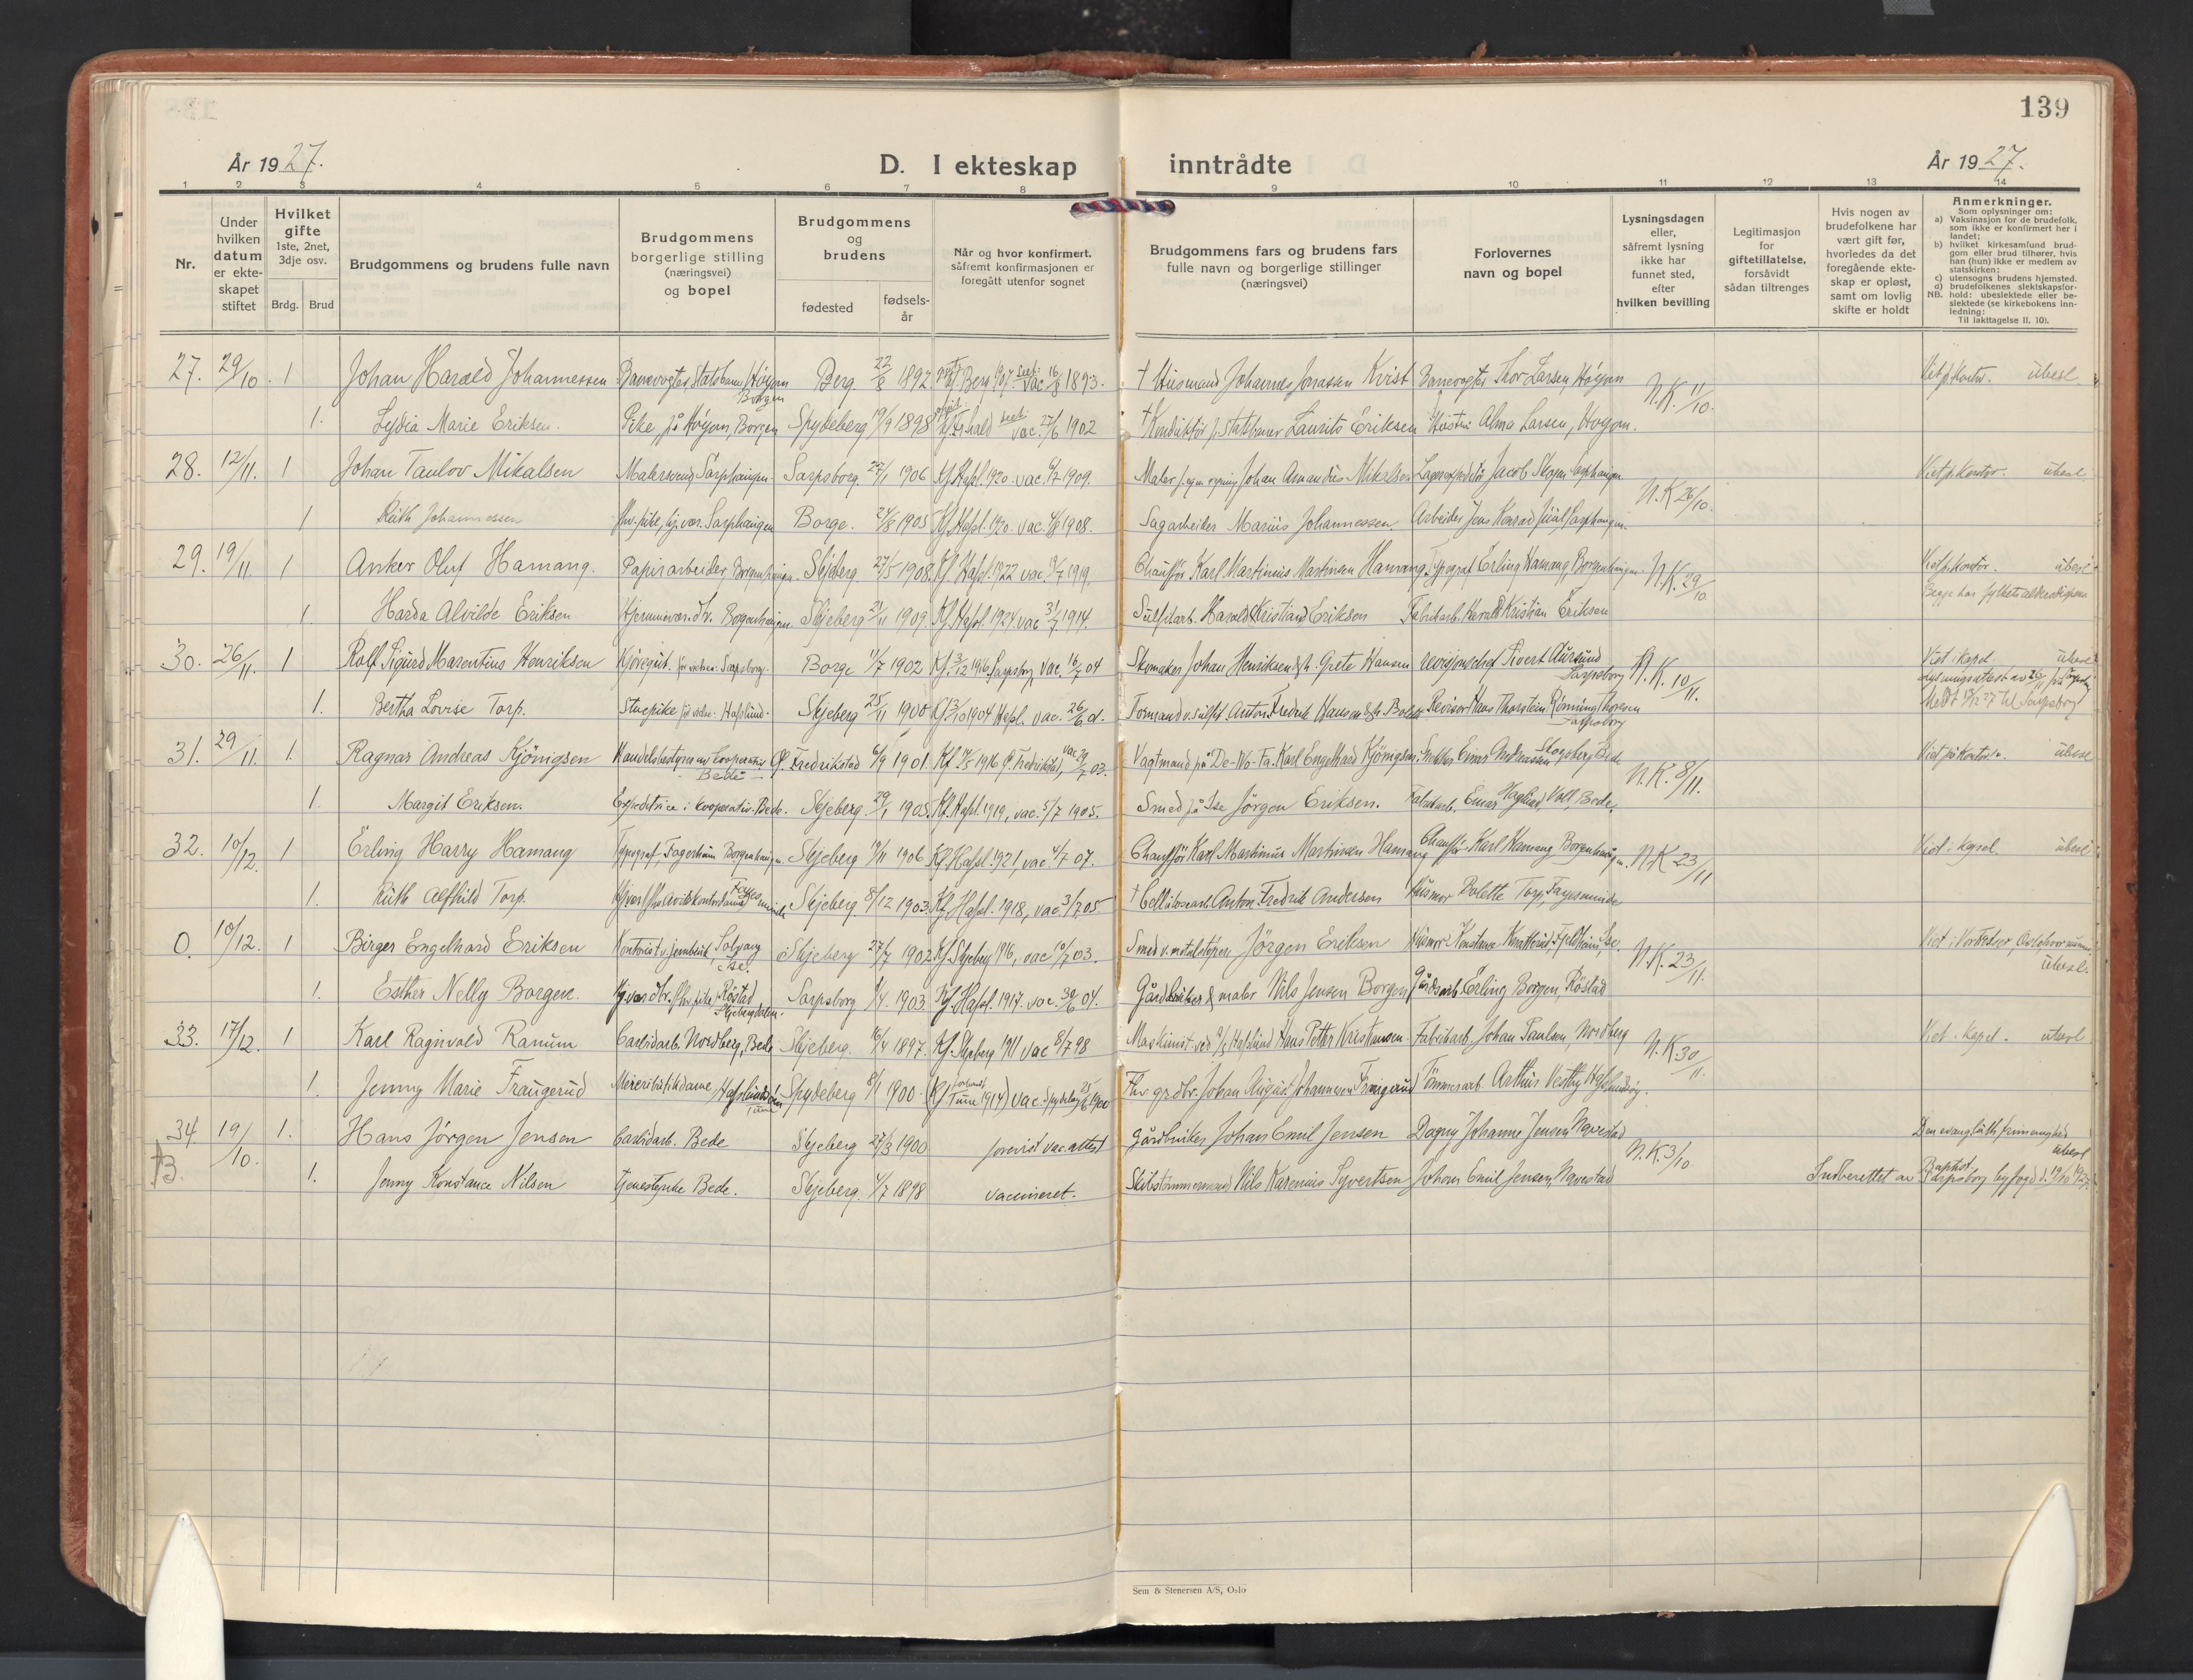 139
År 1927.
D. I ekteskap inntrådte
År 1927.
1 2 3 4 5 6 7 8 9 10 11 12 13 14
Nr.
Under hvilken datum er ekteskapet stiftet
Hvilket gifte 1ste, 2net, 3dje osv.
Brdg. Brud
Brudgommens og brudens fulle navn
Brudgommens borgerlige stilling (næringsvei) og bopel
Brudgommens og brudens
fødested
fødsels-år
Når og hvor konfirmert, såfremt konfirmasjonen er foregått utenfor sognet
Brudgommens fars og brudens fars fulle navn og borgerlige stillinger (næringsvei)
Forlovernes navn og bopel
Lysningsdagen eller, såfremt lysning ikke har funnet sted, efter hvilken bevilling
Legitimasjon for giftetillatelse, forsåvidt sådan tiltrenges
Hvis nogen av brudefolkene har vært gift før, hvorledes da det foregående ekteskap er opløst, samt om lovlig skifte er holdt
Anmerkninger.
Som oplysninger om:
a) Vaksinasjon for de brudefolk, som ikke er konfirmert her i landet;
b) hvilket kirkesamfund brudgom eller brud tilhører, hvis han (hun) ikke er medlem av statskirken;
c) utensogns brudens hjemsted.
d) brudefolkenes slektskapsforhold: ubeslektede eller beslektede (se kirkebokens innledning:
NB. Til iakttagelse II. 10).
27. 29/10 1 Johan Harald Johannessen Banevogter, Statsbanen, Höyom Borgen Berg 22/2 1892 1893. † Husmand Johannes Jonassen Kvist Banevogter Thor Larsen, Höyom N.K. 11/10. ubesl.
1. Lydia Marie Eriksen. Pike, på Höyom, Borgen Spydeberg 19/9 1898 vac. 27/6 1902 † Konduktör j. statsbaner Laurits Eriksen Alma Larsen, Höyom.
28. 12/11. 1 Johan Taulov Mikalsen Malersvend, Sarphaugen. Sarpsborg. 1906 Kf. Hafsl. 1920. vac. 1909. Maler j. egen regning Johan Amandus Mikalsen Jacob Skogen Sarphaugen N.K 26/10. Viet p. kontor. ubesl.
1 Ruth Johannessen Sarphaugen Borge. 24/8 1905 Kf. Hafsl. 1920. vac. 1908. Sagarbeider Marius Johannessen. Arbeider Jens Konrad Sarphaugen.
29. 19/11. 1 Anker Oluf Hamang. Papirarbeider Borgenhaugen. Skjeberg 27/5 1908. Kf. Hafsl. 1922 vac. 1919. Chauffør Karl Martinius Martinsen Hamang. Typograf Erling Hamang, Borgenhaugen. N.K. 29/10 Viet p. kontor. ubesl.
1. Harda Alvilde Eriksen Hjemmevær. Borgenhaugen. Skjeberg 21/11 1909. Kf. Hafsl. 1924 vac 3/7 1914. Sulfitarb. Harald Kristian Eriksen Fabrikarb. Harald Kristian Eriksen
30. 26/11. 1 Rolf Sigurd Marentius Henriksen Sarpsborg. Borge 11/7 1902 Kf. 3/12 1916 Sarpsborg, vac. 16/7 04 Skomaker Johan Henriksen & h. Grete Hansen Sivert Aursund Sarpsborg N.K. 10/11. Viet i kapel. ubesl.
1. Bertha Lovise Torp. Stuepike før vielse: Hafslund. Skjeberg 25/11 1900 Hafsl. vac. Formand v. sulfit Anton Fredrik Hansen Revisor Hans Thorstein Rönning Thoresen Sarpsborg
31. 29/11. 1. Ragnar Andreas Kjönigsen Handelsbestyrer av Cooperativet Bede G. Fredrikstad 6/9 1901. Kf. 1916 G. Fredrikstad, vac 03. Vagtmand på De-No-Fa. Karl Engelhard Kjönigsen. Snekker Einar Andreassen Skogsberg Bede N.K. 8/11. Viet på kontor. ubesl
1. Margit Eriksen. Expeditrice i Kooperativ. Bede. Skjeberg. 29/1 1905. Kf. Hafsl. 1919, vac. 5/7 1905. Smed på Ise Jörgen Eriksen. Fabrikarb. Einar Haglund, Voll, Bede.
32. 10/12. 1 Erling Harry Hamang Typograf Fagerheim Borgenhaugen. Skjeberg 19/11 1906 Kf. Hafsl. 1921, vac 4/7 07. Chauffør Karl Martinius Martinsen Hamang Chauffør Karl Hamang Borgenhaugen. N.K 23/11 Viet i kapel. ubesl
1. Ruth Alfhild Torp. Skjeberg 8/12 1903. Kf. Hafsl. 1918, vac. 3/7 05 † Cellulosearb. Anton Fredrik Andersen Husmor Bolette Torp, Fagesminde
0. 10/12. 1 Birger Engelhard Eriksen Kontorist Solvang Ise. Skjeberg 27/7 1902 Kf. Skjeberg 1916, vac 10/7 03. Smed v. metalstøperi Jörgen Eriksen N.K. 23/11. ubesl.
1. Esther Nelly Borgen. Röstad, Skjebergdalen. Sarpsborg 1/4. 1903. Kf. Hafsl. 1917. vac. 30/6 04. Gårdbruker & maler Nils Jensen Borgen Gårdsarb. Erling Borgen, Röstad
33. 17/12. 1 Karl Ragnvald Ranum Carbidarb. Nordberg, Bede Skjeberg. 16/4 1897. Kf. Skjeberg 1911 vac 8/7 98 Maskinist ved Hafslund Hans Petter Kristiansen. Fabrikarb. Johan Paulsen, Nordberg N.K. 30/11. Viet i kapel. ubesl
1. Jenny Marie Fraugerud Meieributikdame Spydeberg 8/1 1900. (Kf. Tune 1914) vac. Spydeberg 1900 Fhv. grdbr. Johan August Johannessen Fraugerud Tömmerarb. Arthur Vestby
34. 19/10. 1. Hans Jörgen Jensen Carbidarb. Bede Skjeberg 27/3 1900 forevist vac. attest Gårdbruker Johan Emil Jensen Dagny Johanne Jensen N.K. 3/10. Den evang. luth. frimenighed ubesl
B. 1. Jenny Konstance Nilsen Tjenestepike Bede. Skjeberg. 4/7 1898 vaccineret. Skibstömmermand Nils Karenius Syvertsen Johan Emil Jensen Indberettet av Baptist. Sarpsborg byfoged d. 19/10 1927.
Sem & Stenersen A/S, Oslo